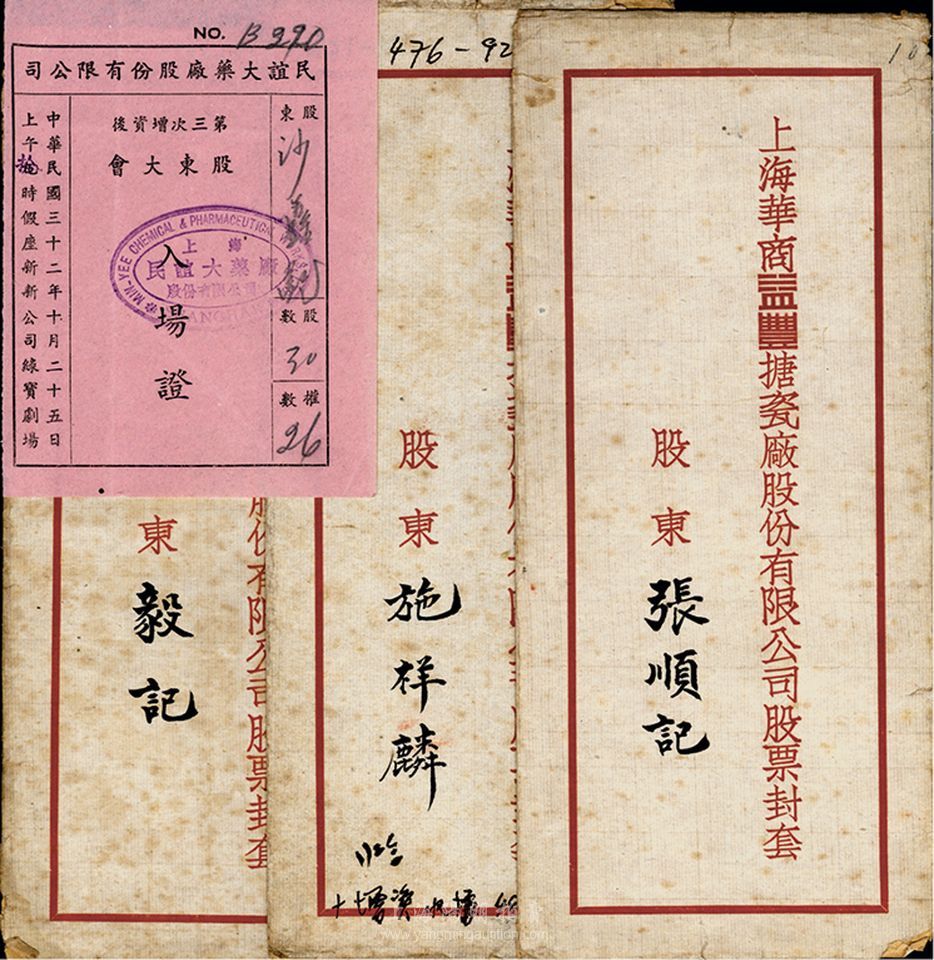 NO. B 220
民誼大藥廠股份有限公司
股東
沙
股數
30
權數
26
第三次增資後
股東大會
入場證
MIN-YEE CHEMICAL & PHARMACEUTICAL
上海
民誼大藥廠
股份有限公司
中華民國三十二年十月二十五日
上午拾時假座新新公司綠寶劇場
476-92
10
上海華商益豐搪瓷廠股份有限公司股票封套
股東
張順記
股東
施祥麟
增资
股份有限公司股票封套
東
毅記
www.yangmingauction.com